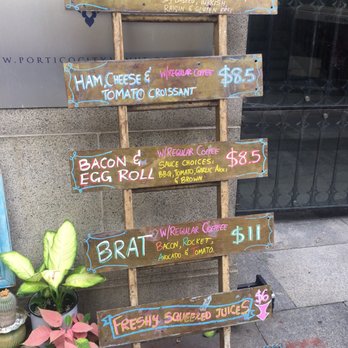 RAISIN & GLUTEN FREE
W.PORTICOCITY
HAM, CHEESE & W/REGULAR COFFEE $8.5
TOMATO CROISSANT
BACON & W/REGULAR COFFEE $8.5
EGG ROLL SAUCE CHOICES:
BBQ, TOMATO, GARLIC AIOLI
& BROWN
BRAT W/REGULAR COFFEE $11
BACON, ROCKET,
AVOCADO & TOMATO.
FRESHLY SQUEEZED JUICES $6